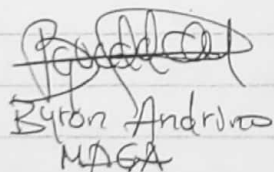 Byron Andrino
MAGA